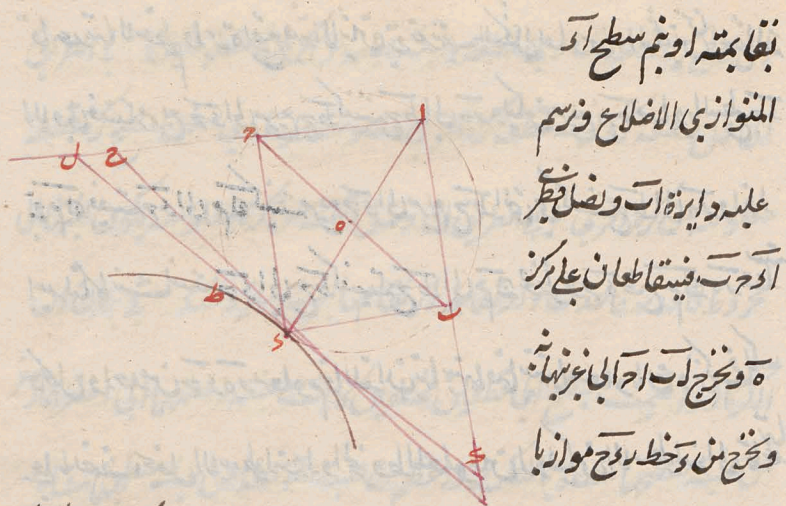 بقايمته او نتم سطح اء
المتوازى الاضلاع ونرسم
عليه دايرة اب ونصل قطرى
اء حب فيتقاطعان على مركز
ه ونخرج اب اح الى غير نهاية
ونخرج من ء خط ح موازيا
ل ح ح ا
ه
ط
ب
ء
ع